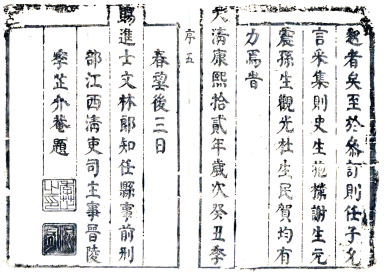 者矣至於參訂則任子允
言采集則史生施揆謝生元
震孫生觀光杜生民賀均有
力焉旹
大清康熙拾貳年歲次癸丑季
序五
春望後三日
賜進士文林郎知任縣事前刑
部江西清吏司主事晉陵
季芷介菴題